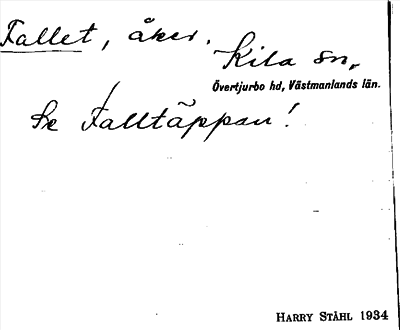 Fallet, åker.
Kila sn,
Övertjurbo hd, Västmanlands län.
Se Falltäppan!
HARRY STÅHL 1934